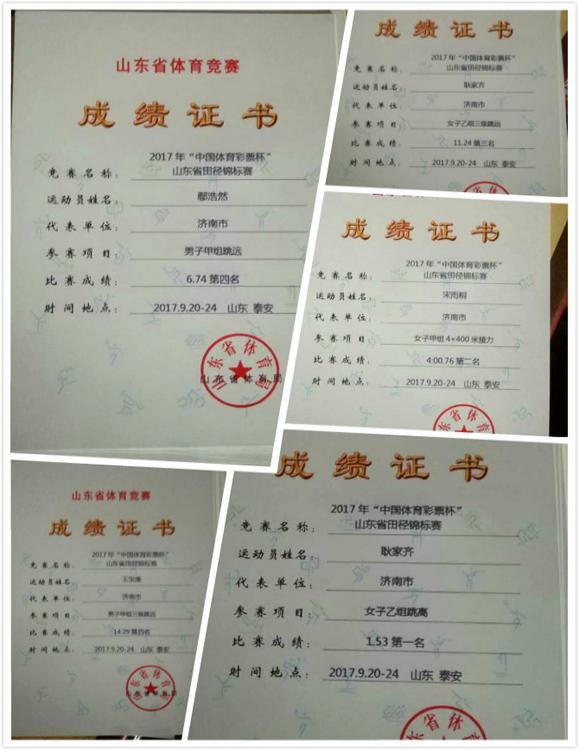 山东省体育竞赛
成绩证书
竞赛名称：2017年“中国体育彩票杯”
山东省田径锦标赛
运动员姓名：鄢浩然
代表单位：济南市
参赛项目：男子甲组跳远
比赛成绩：6.74 第四名
时间地点：2017.9.20-24 山东 泰安
山东省体育局
山东省体育局
成绩证书
竞赛名称：2017年“中国体育彩票杯”
山东省田径锦标赛
运动员姓名：耿家齐
代表单位：济南市
参赛项目：女子乙组三级跳远
比赛成绩：11.24 第三名
时间地点：2017.9.20-24 山东 泰安
成绩证书
竞赛名称：2017年“中国体育彩票杯”
山东省田径锦标赛
运动员姓名：宋雨桐
代表单位：济南市
参赛项目：女子甲组 4×400米接力
比赛成绩：4:00.76 第二名
时间地点：2017.9.20-24 山东 泰安
山东省体育局
山东省体育竞赛
成绩证书
竞赛名称：2017年“中国体育彩票杯”
山东省田径锦标赛
运动员姓名：
代表单位：济南市
参赛项目：男子甲组三级跳远
比赛成绩：14.29 第四名
时间地点：2017.9.20-24 山东 泰安
山东省体育局
山东省体育局
成绩证书
竞赛名称：2017年“中国体育彩票杯”
山东省田径锦标赛
运动员姓名：耿家齐
代表单位：济南市
参赛项目：女子乙组跳高
比赛成绩：1.53 第一名
时间地点：2017.9.20-24 山东 泰安
省体育